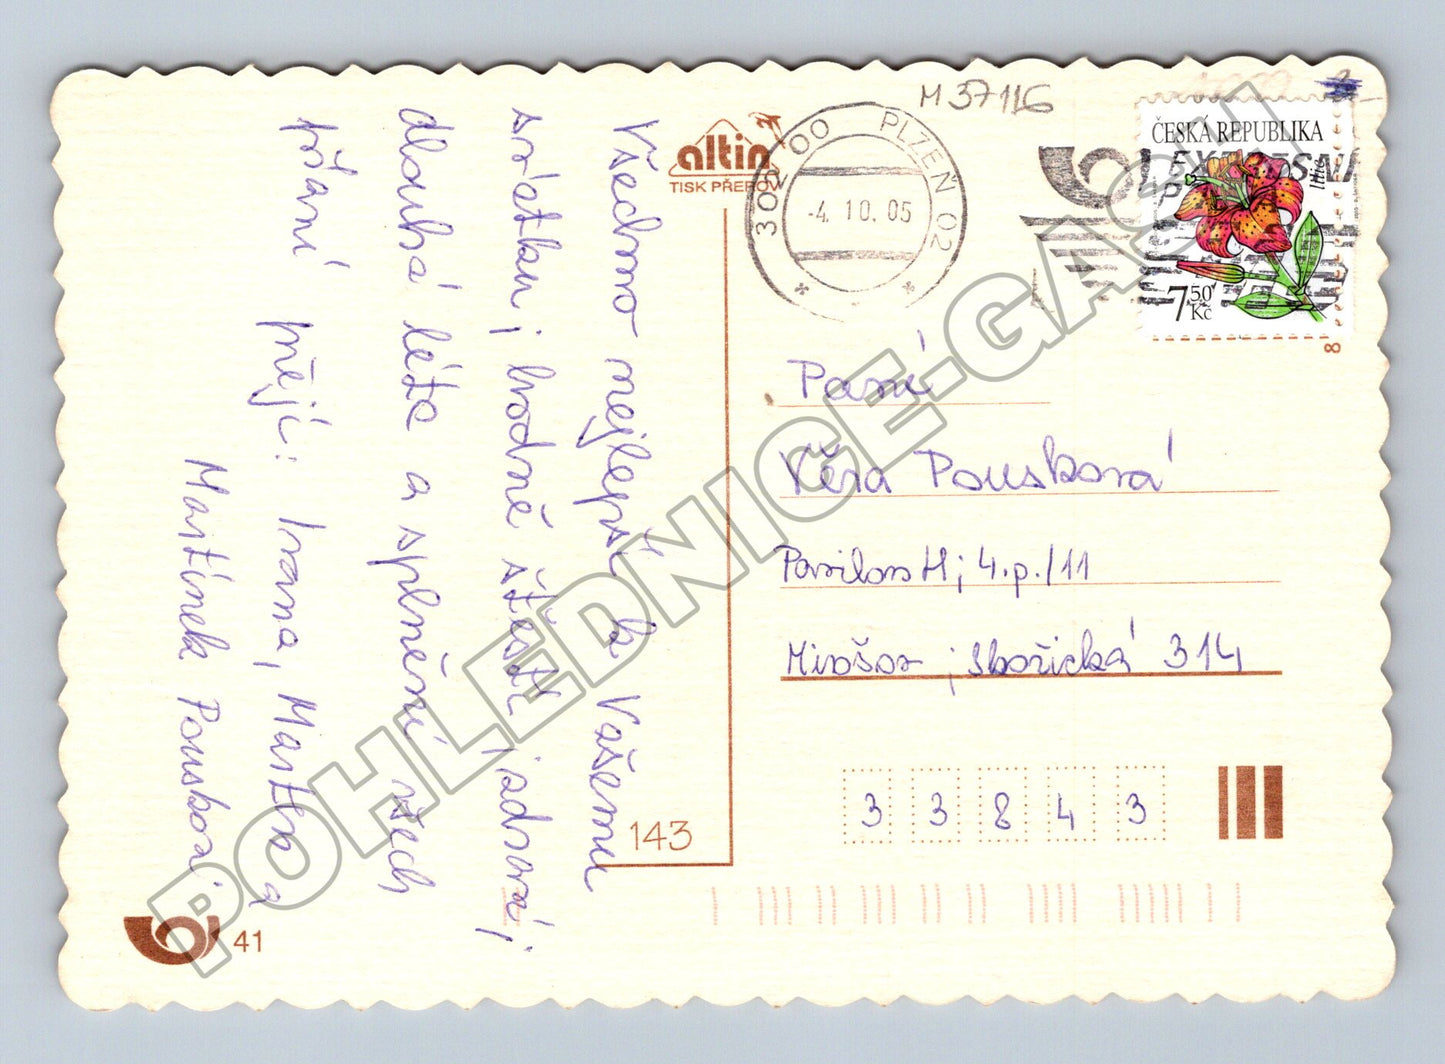 Všechno nejlepší k Vašemu
svátku, hodně štěstí, zdraví,
dlouhá léta a splnění všech
přání přejí: Ivana, Martin a
Martínek Pouskovi.
M 37116
altin
TISK PŘEROV
302 00 PLZEŇ 02
-4.10.05
ČESKÁ REPUBLIKA
lilie
7,50
Kč
8
Paní
Věra Pousková
Pavilon H; 4.p./11
Mirošov; Skořická 314
33843
143
41
POHLEDNICE-GASH